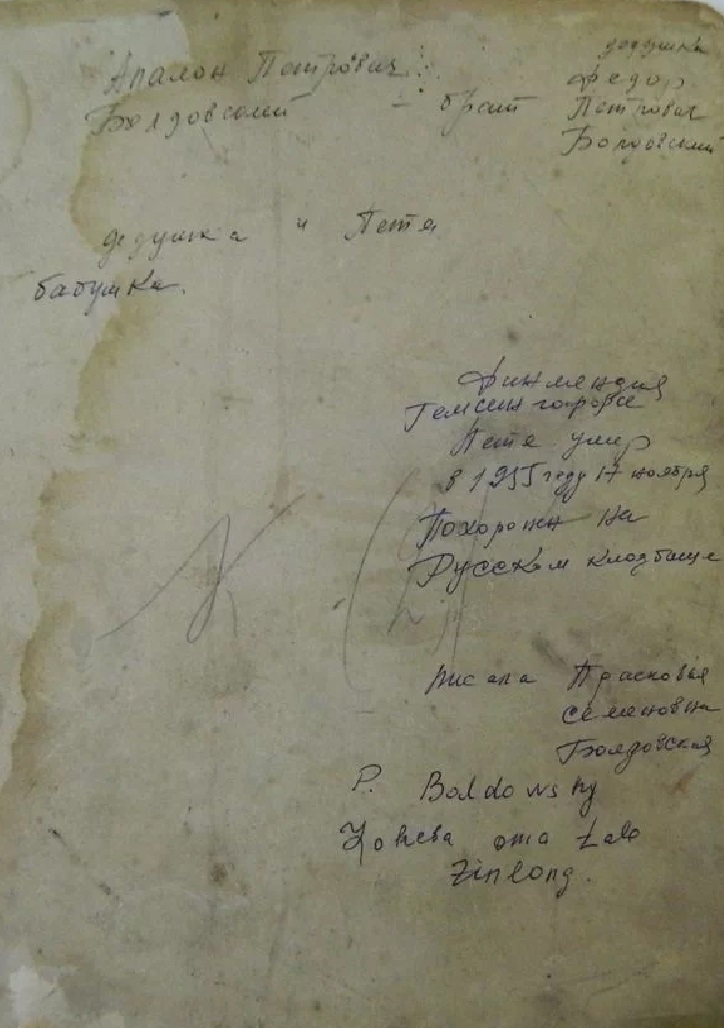 Апалон Петрович
Болдовский — брат
дедушка
Федор
Петрович
Болдовский
дедушка и Петя
бабушка.
Финмендия
Гемсингфорсе
Петя умер
в 1955 году 17 ноября
Похоронн на
Русском кладбище
писала Прасковья
Семеновна
Болдовская
P. Boldowsky